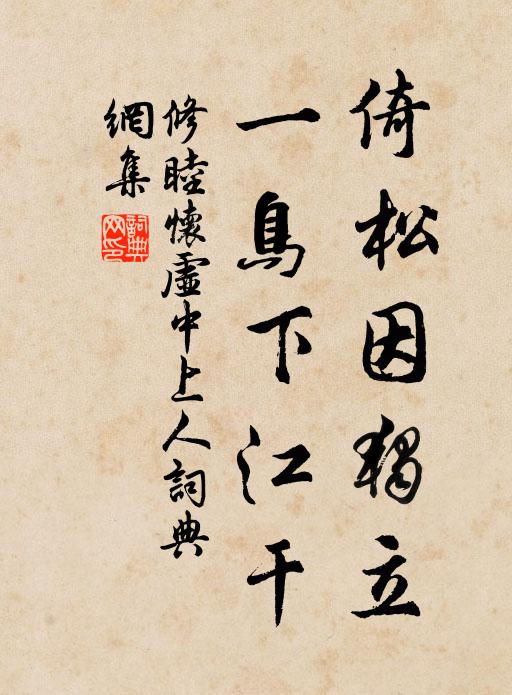 倚松因獨立
一鳥下江干
修睦懷虛中上人詞典
網集
詞典
網印